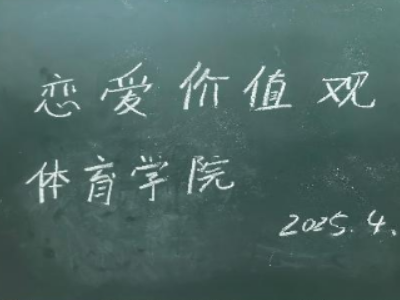 恋爱价值观
体育学院
2025.4.